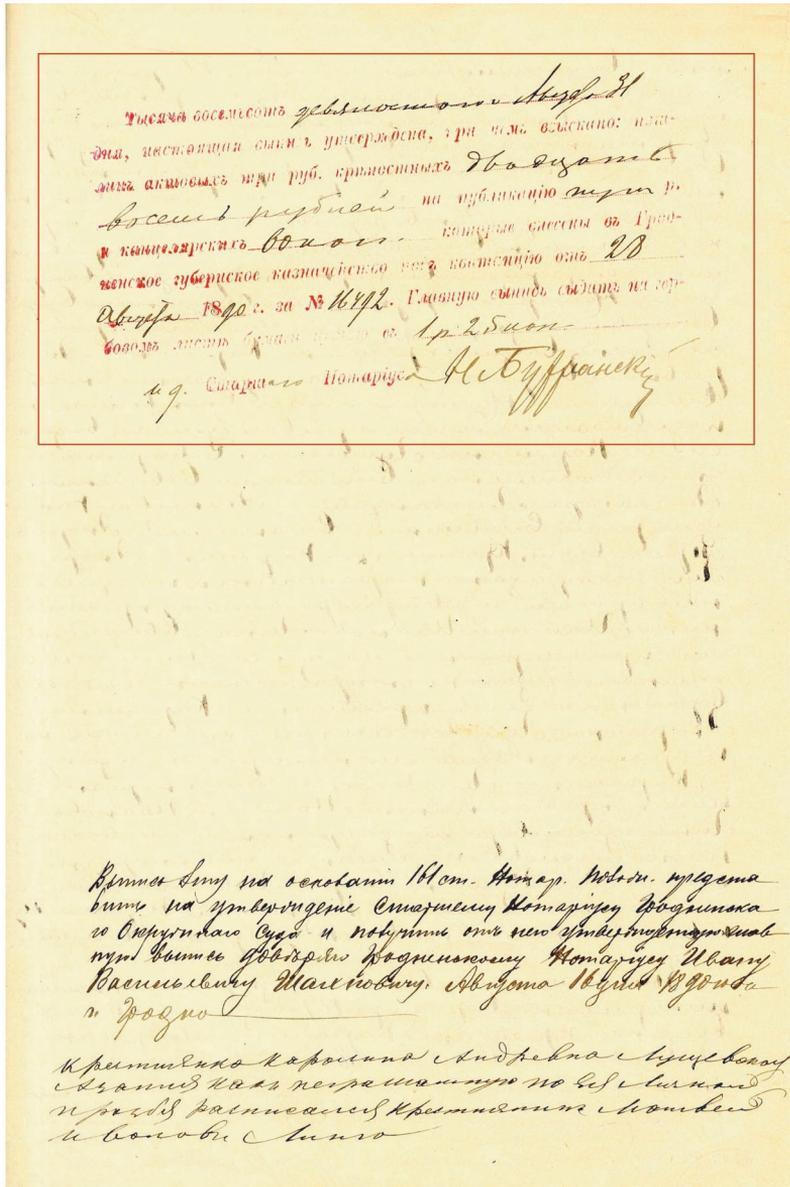 Тысяча восемьсотъ девяностого Августа 31
дня, настоящая выпись утверждена, при чемъ взыскано:
линъ актовыхъ три руб. крѣпостныхъ двадцать
восемь рублей на публикацію три р.
и канцелярскихъ 60 коп. которые внесены въ Грод-
ненское губернское казначейство подъ квитанцію отъ 28
Августа 1890 г. за № 16492. Главную выпись выдать на гер-
бовомъ листѣ бумаги въ 1 р 25 коп
и д. Старшаго Нотаріуса Н
Выпись эту на основаніи 161 ст. Нотар. Полож. предста
вить на утвержденіе Старшему Нотаріусу Гродненска
го Окружнаго Суда и получить отъ него утвержденную
ную выпись довѣряю Гродненскому Нотаріусу Ивану
Васильевичу Августа 16 дня 1890 года
г. Гродно
Крестьянка Каролина Андреевна
А за нея какъ неграмотную по ея личной
просьбѣ расписался крестьянинъ Матвей
Ивановъ